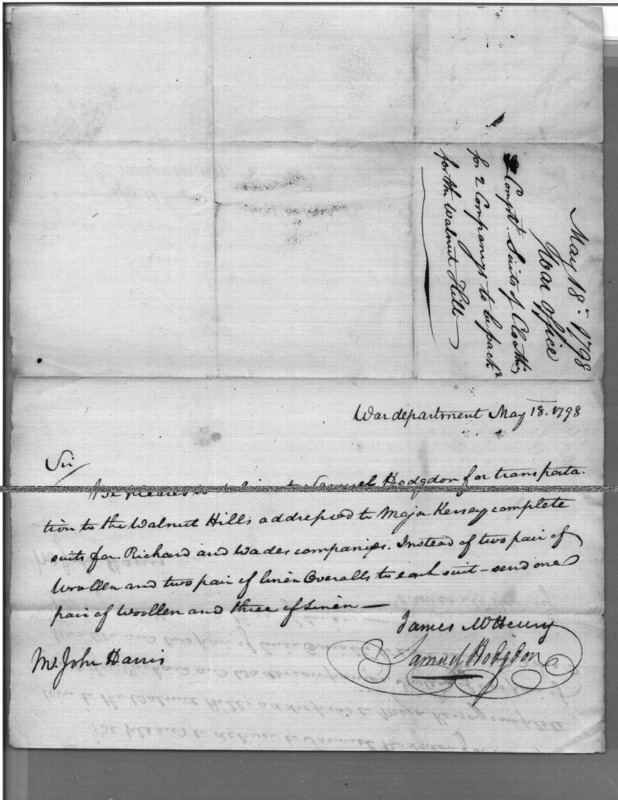 May 18. 1798
War Office
Complt. Suits of Cloathg
for 2 Companys to be pack'd
for the Walnut Hills
War department May 18. 1798
Sir
Be pleased to deliver to Samuel Hodgdon for transporta-
tion to the Walnut Hills addressed to Major Kersey complete
suits for Richard and Wades companies. Instead of two pair of
Woollen and two pair of linen Overalls to each suit - send one
pair of Woollen and three of Linen —
James McHenry
Samuel Hodgdon
Mr. John Harris